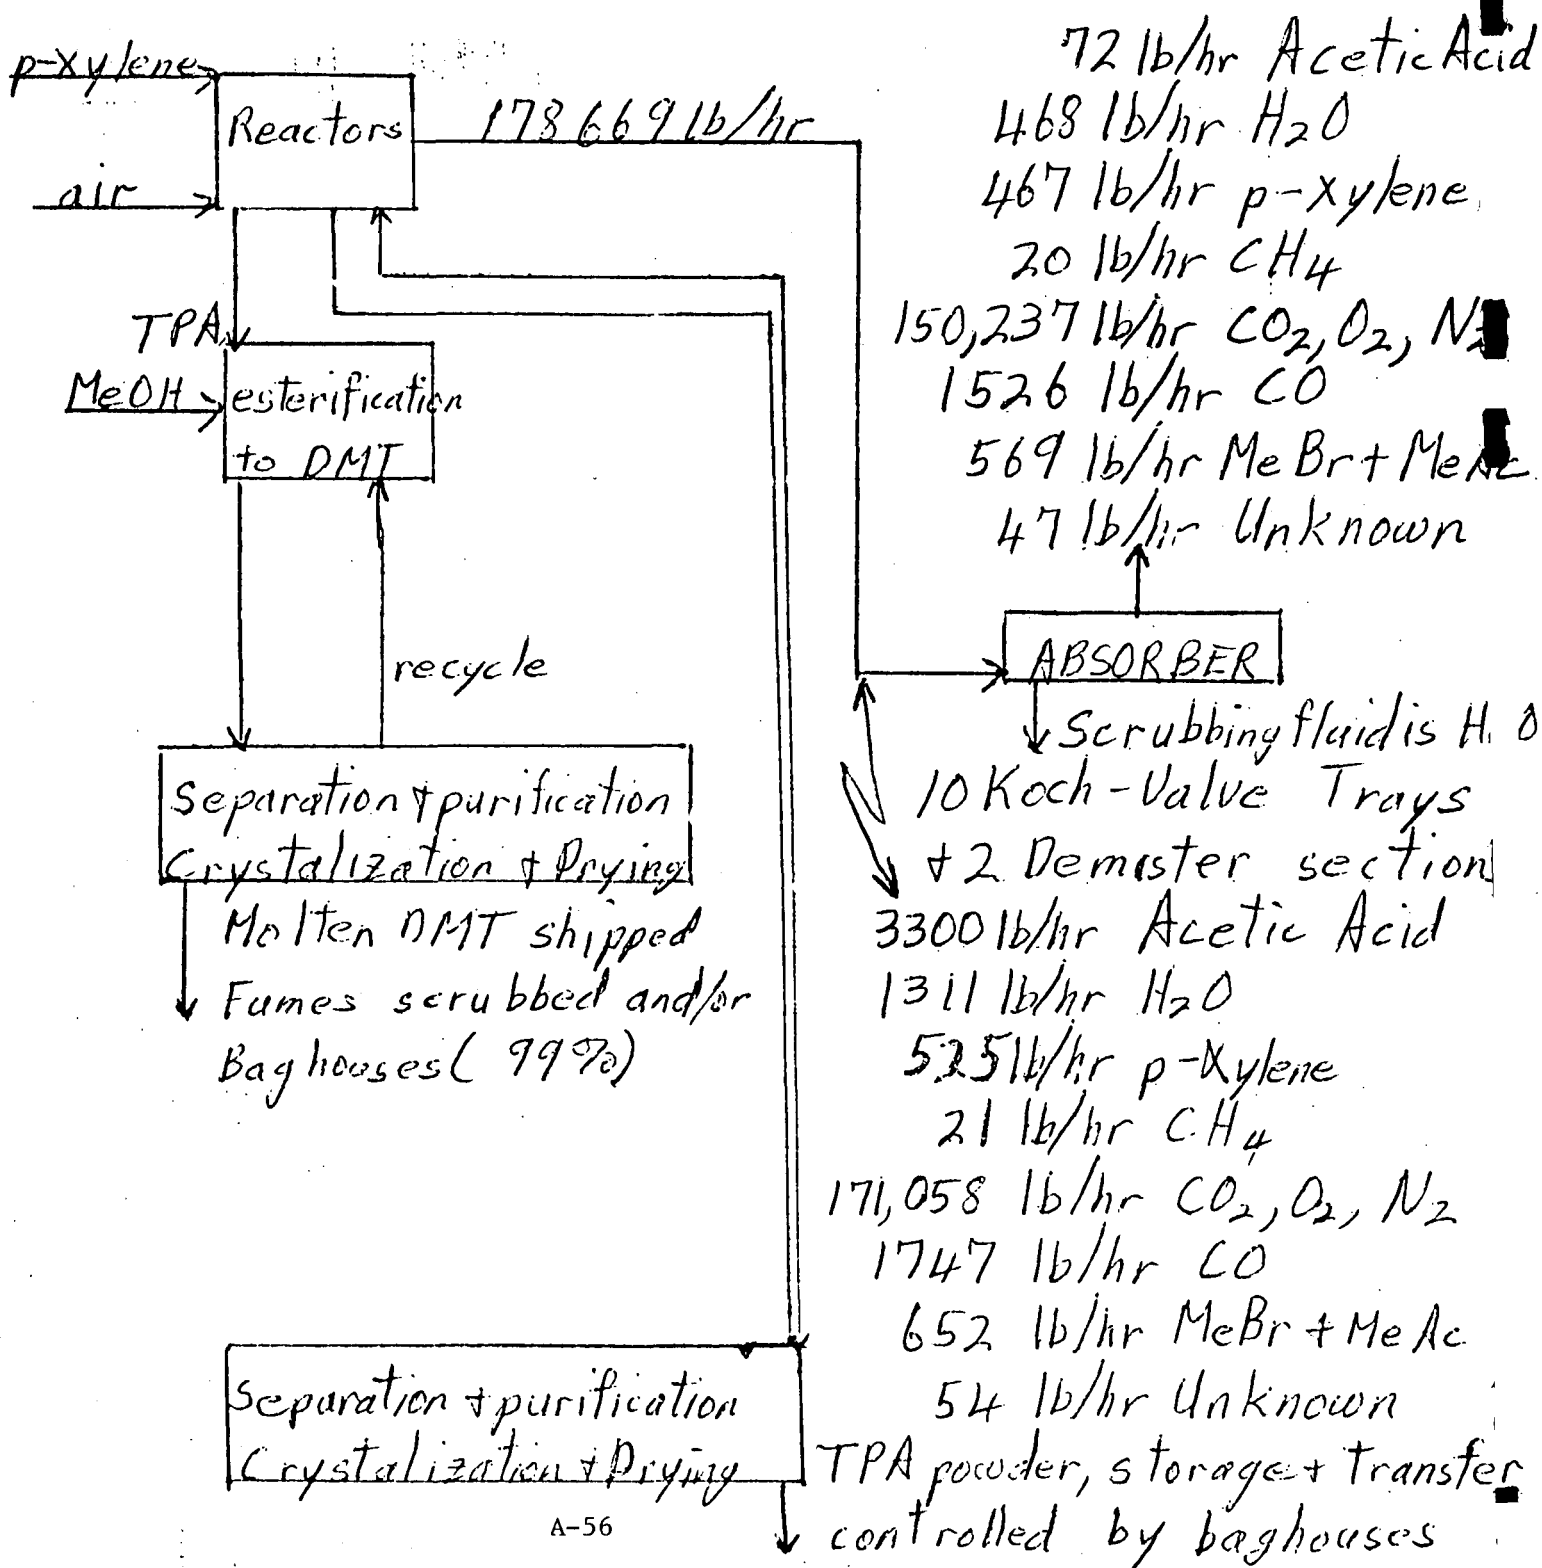 p-xylene
Reactors
air
178669 lb/hr
TPA
MeOH
esterification
to DMT
recycle
Separation + purification
Crystalization + Drying
Molten DMT shipped
Fumes scrubbed and/or
Baghouses ( 99%)
72 lb/hr Acetic Acid
468 lb/hr H2O
467 lb/hr p-xylene
20 lb/hr CH4
150,237 lb/hr CO2, O2, N2
1526 lb/hr CO
569 lb/hr MeBr + MeAc
47 lb/hr Unknown
ABSORBER
Scrubbing fluid is H O
10 Koch-Valve Trays
+ 2 Demister section
3300 lb/hr Acetic Acid
1311 lb/hr H2O
525 lb/hr p-Xylene
21 lb/hr CH4
171,058 lb/hr CO2, O2, N2
1747 lb/hr CO
652 lb/hr MeBr + MeAc
54 lb/hr Unknown
Separation + purification
Crystalization + Drying
TPA powder, storage + Transfer
controlled by baghouses
A-56